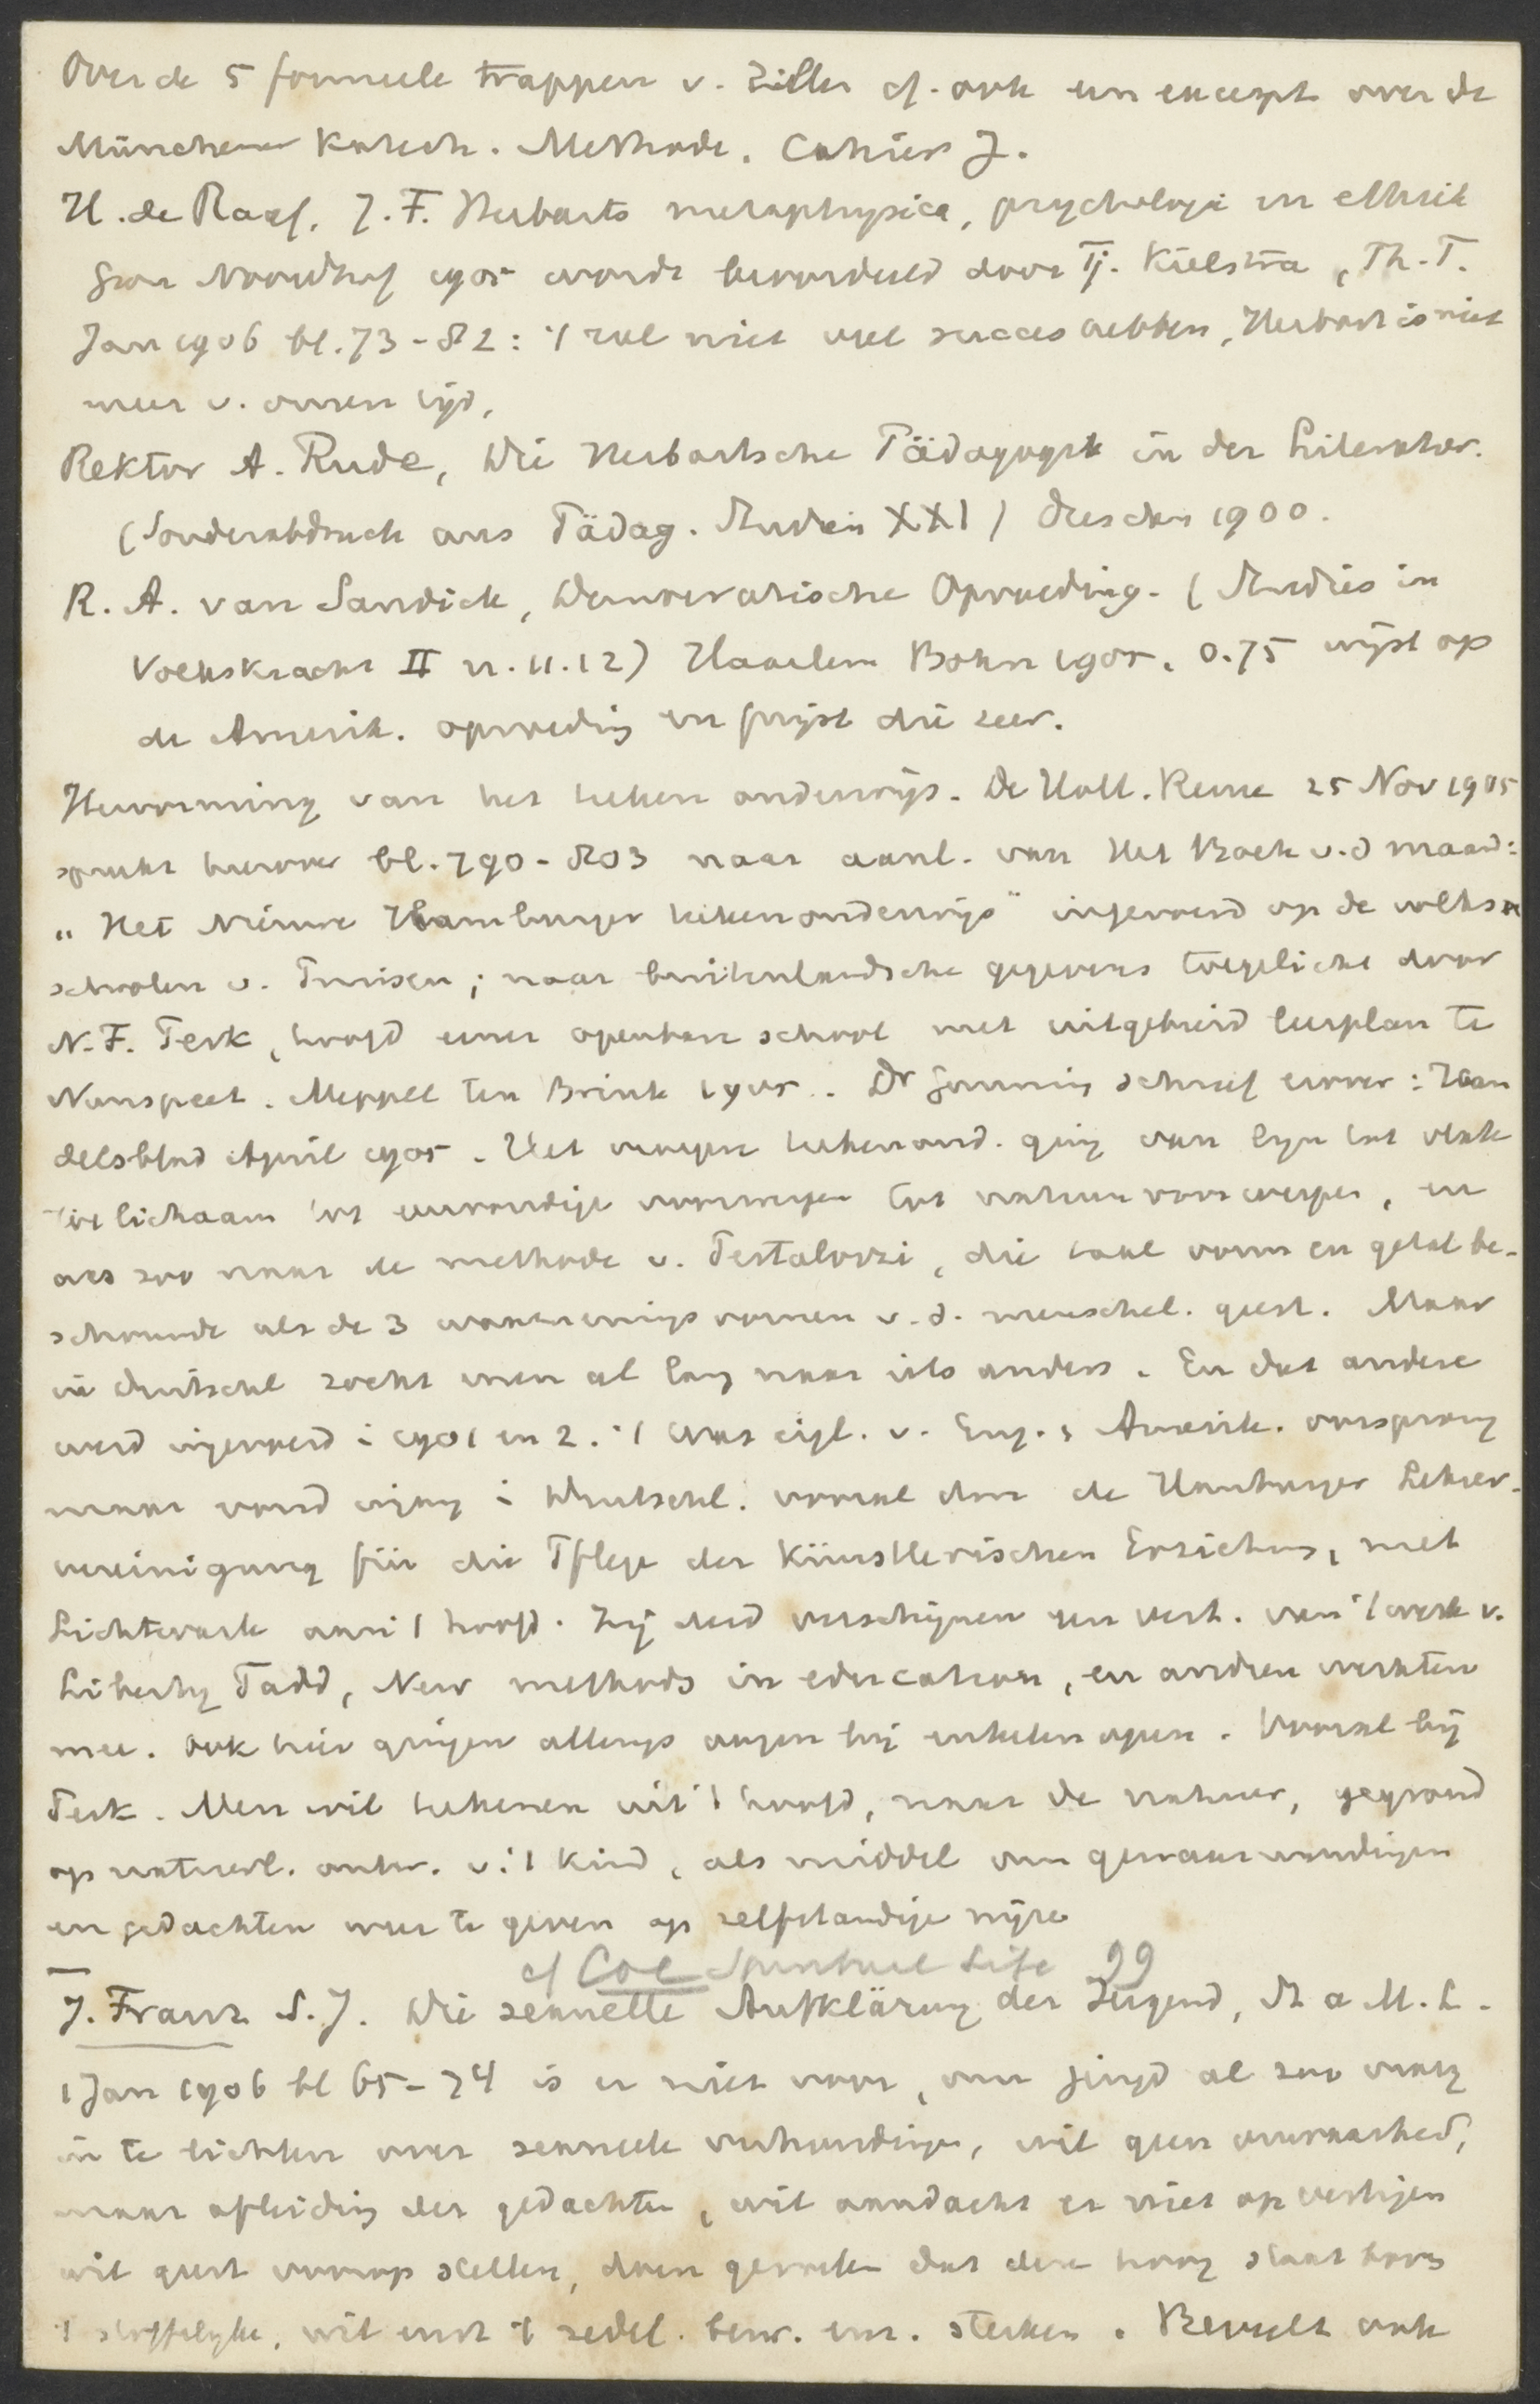 Over de 5 formeele trappen v. Ziller cf. ook een excerpt over de
Münchener Katech. Methode. Cahier J.
H. de Raaf, J. F. Herbarts metaphysica, psychologie en ethiek
Gron Noordhof 1905 wordt beoordeeld door Tj. Kielstra, Th. T.
Jan 1906 bl. 73-82: 't zal niet veel succes hebben, Herbart is niet
meer v. onzen tijd,
Rektor A. Rude, Die Herbartsche Pädagogik in der Literatur.
(Sonderabdruck aus Pädag. Studien XXI) Dresden 1900.
R. A. van Sandick, Democratische Opvoeding. (Studies in
Volkskracht II n. 11.12) Haarlem Bohn 1905. 0.75 wijst op
de Amerik. opvoeding en prijst die zeer.
Hervorming van het teekenonderwijs. De Holl. Revue 25 Nov 1905
spreekt hierover bl. 790-803 naar aanl. van Het Boek v.d maand:
„Het Nieuwe Hamburger teekenonderwijs" ingevoerd op de volks
scholen v. Pruisen; naar buitenlandsche gegevens toegelicht door
N. F. Perk, hoofd eener openbare school met uitgebreid leerplan te
Nunspeet. Meppel ten Brink 1905. Dr Gunning schreef erover: Han
delsblad April 1905. Het vroegere teekenond. ging van lijn tot vlak
tot lichaam tot eenvoudige voorwerpen tot natuurvoorwerpen, en
was zoo naar de methode v. Pestalozzi, die taal vorm en getal be-
schouwde als de 3 v. d. menschel. geest. Maar
in Duitschl zocht men al lang naar iets anders. En dat andere
werd ingevoerd i 1901 en 2. 't Was eigl. v. Eng. & Amerik. oorsprong
maar vond ingang i Duitschl. vooral door de Hamburger Lehrer-
vereinigung für die Pflege der Künstlerischen Erziehung, met
Lichtwark aan 't hoofd. Zij deed verschijnen een vert. van 't werk v.
Liberty Tadd, New methods in education, en andren werkten
mee. Ook hier gingen allengs oogen bij enkelen open. Vooral bij
Perk. Men wil teekenen uit 't hoofd, naar de natuur, gegrond
op natuurl. ontw. v. 't kind, als middel om gewaarwordingen
en gedachten weer te geven op zelfstandige wijze
cf Coe Spiritual Life 99
J. Franz S. J. Die sexuelle Aufklärung der Jugend, St a M. L.
1 Jan 1906 bl 65-74 is er niet voor, om jeugd al zoo vroeg
in te lichten over sexueele verhoudingen, wil geen
maar afleiding der gedachten, wil aandacht er niet op vestigen
wil geest voorop stellen, doen gevoelen dat deze hoog staat boven
't stoffelijke, wil eerst 't zedel. bew. enz. sterken. Beveelt ook